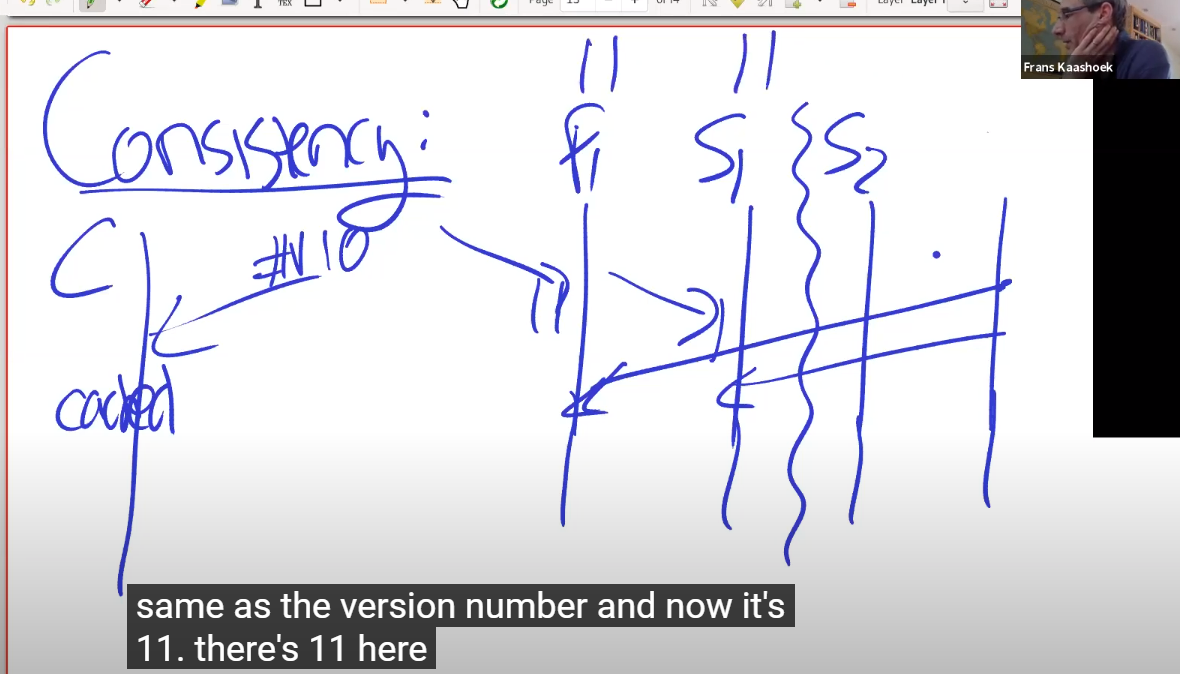 TEX
Page 13 of 14 Layer Layer 1
Frans Kaashoek
11 11
Consistency:
P1 S1 S2
C
#V10
11
cached
same as the version number and now it's
11. there's 11 here